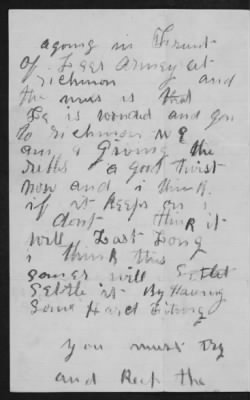 agoing in Frunt
of Lees Armey at
richmon and
the nus is that
Le is wonded and gon
to richmon we
am a Giving the
rebbs a good twist
now and i think
if it keeps on i
dont think it
will Last Long
i think this
somer will Settel
Settle it By Having
Some Hard Fiting
you must try
and Keep the